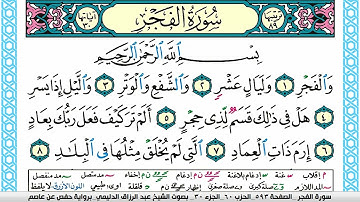 ترتيبها ٨٩ سُورَةُ الْفَجْرِ آياتها ٣٠
بِسْمِ اللَّهِ الرَّحْمَٰنِ الرَّحِيمِ
وَالْفَجْرِ ١ وَلَيَالٍ عَشْرٍ ٢ وَالشَّفْعِ وَالْوَتْرِ ٣ وَاللَّيْلِ إِذَا يَسْرِ
٤ هَلْ فِي ذَٰلِكَ قَسَمٌ لِّذِي حِجْرٍ ٥ أَلَمْ تَرَ كَيْفَ فَعَلَ رَبُّكَ بِعَادٍ
٦ إِرَمَ ذَاتِ الْعِمَادِ ٧ الَّتِي لَمْ يُخْلَقْ مِثْلُهَا فِي الْبِلَادِ ٨
سورة الفجر - الصفحة ٥٩٣ - الحزب ٦٠ - الجزء ٣٠ - بصوت الشيخ عبد الرزاق الدليمي - برواية حفص عن عاصم